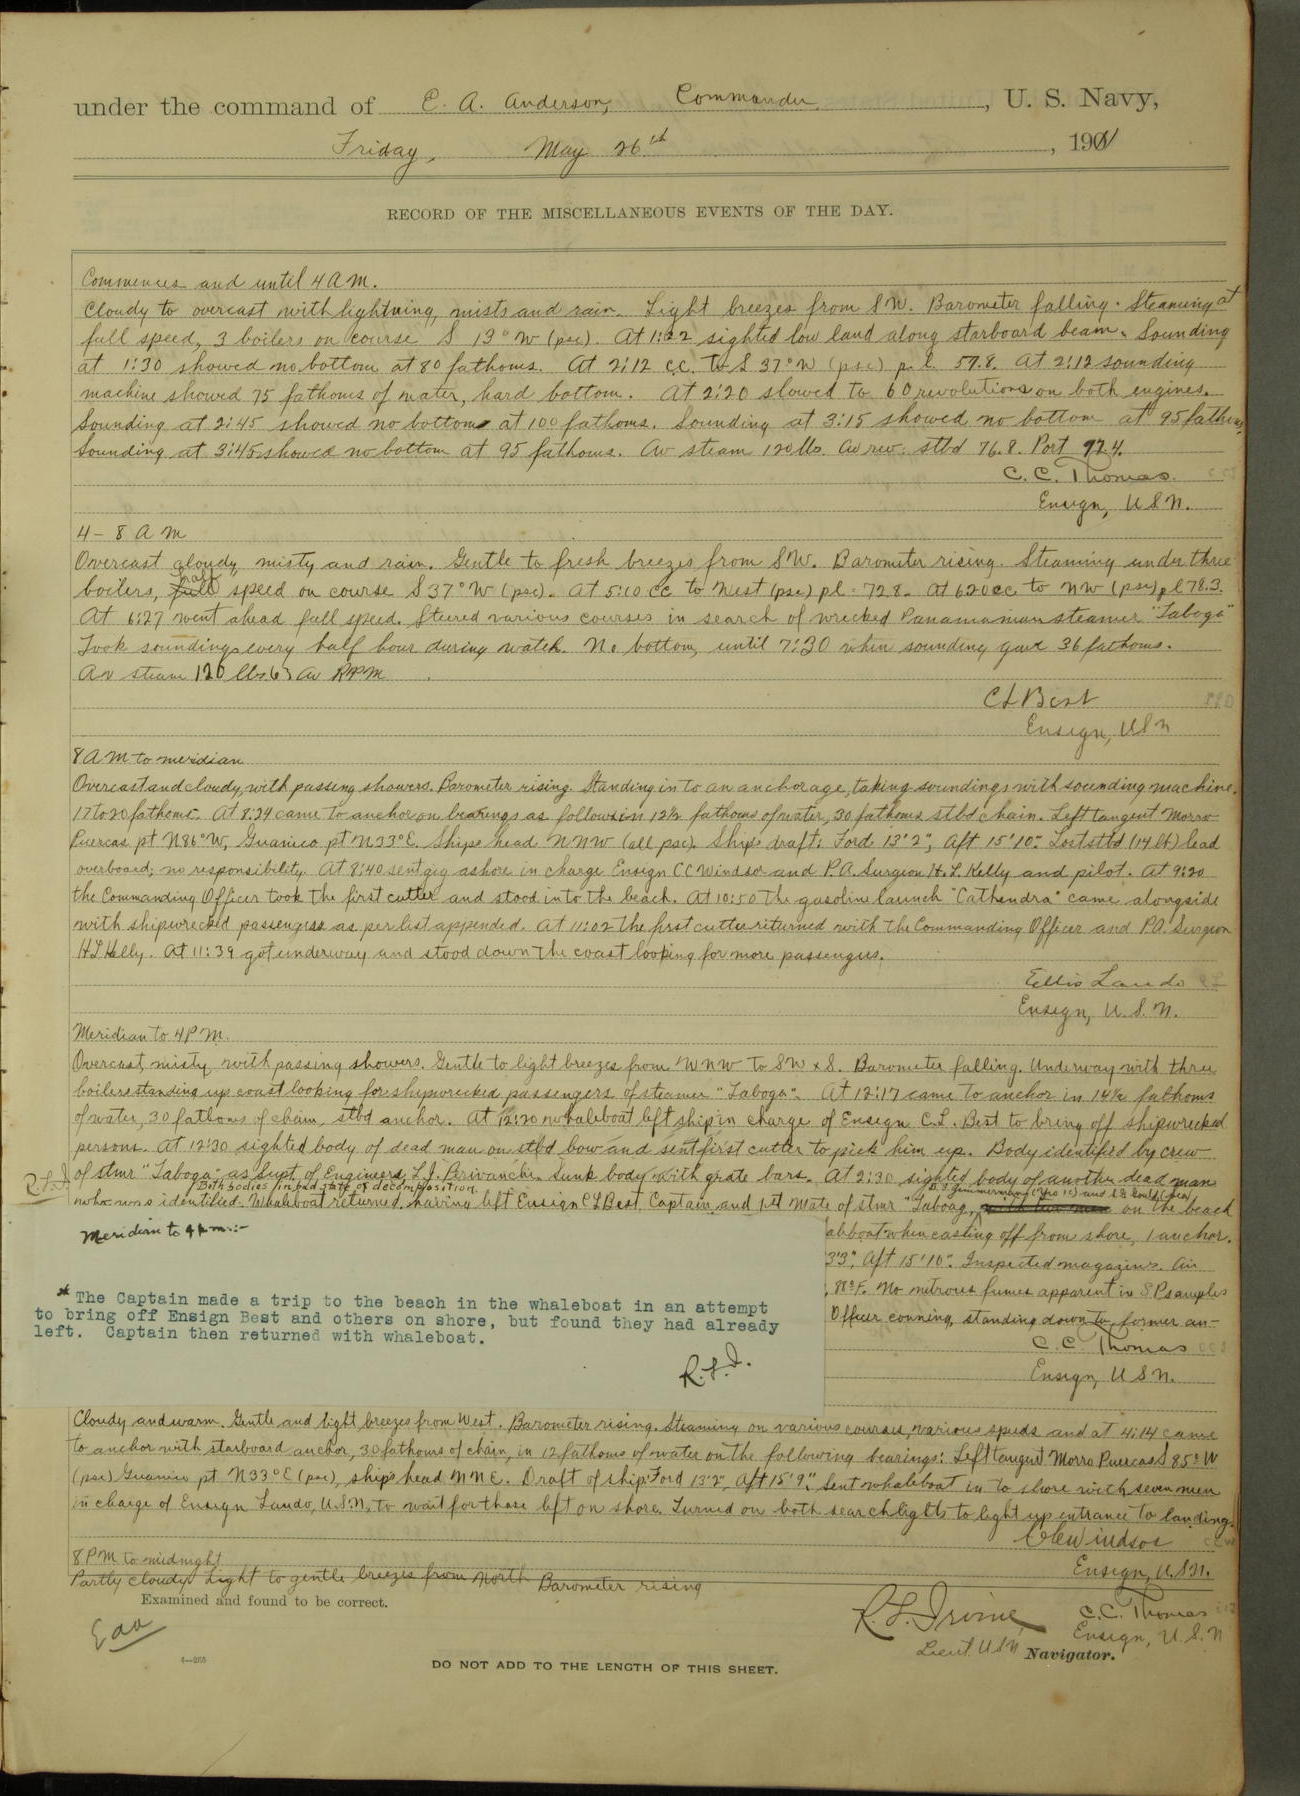 under the command of E. A. Anderson, Commander, U. S. Navy,
Friday, May 26th, 1911
RECORD OF THE MISCELLANEOUS EVENTS OF THE DAY.
Commences and until 4 A M.
Cloudy to overcast with lightning, mists and rain. Light breezes from SW. Barometer falling. Steaming at
full speed, 3 boilers on course S 13° W (psc). At 1:22 sighted low land along starboard beam. Sounding
at 1:30 showed no bottom at 80 fathoms. At 2:12 c.c. to S 37° W (psc) p. l. 59.8. At 2:12 sounding
machine showed 75 fathoms of water, hard bottom. At 2:20 slowed to 60 revolutions on both engines.
Sounding at 2:45 showed no bottom at 100 fathoms. Sounding at 3:15 showed no bottom at 95 fathoms,
Sounding at 3:45 showed no bottom at 95 fathoms. Av steam 120 lbs. Av rev: stbd 76.8. Port 92.4.
C. C. Thomas.
Ensign, U S N.
4 – 8 A M
Overcast cloudy, misty and rain. Gentle to fresh breezes from SW. Barometer rising. Steaming under three
boilers, half speed on course S 37° W (psc). At 5:10 cc to West (psc) pl. 72.8. At 6:20 cc to NW (psc) pl 78.3.
At 6:27 went ahead full speed. Steered various courses in search of wrecked Panamanian steamer "Taboga"
Took soundings every half hour during watch. No bottom, until 7:30 when sounding gave 36 fathoms.
Av steam 120 lbs 63 av RPM
C L Best
Ensign, U S N
8 A M to meridian
Overcast and cloudy, with passing showers. Barometer rising. Standing in to an anchorage, taking soundings with sounding machine.
17 to 20 fathoms. At 8:24 came to anchor on bearings as follows in 12½ fathoms of water, 30 fathoms stbd chain. Left tangent Morro
Puercas pt N 86° W, Guanico pt N 33° E. Ships head NNW (all psc). Ships draft: Ford 13' 2", Aft 15' 10". Lost stbd (14 lb) lead
overboard; no responsibility. At 8:40 sent gig ashore in charge Ensign C C Windsor and P.A. Surgeon H. L. Kelly and pilot. At 9:20
the Commanding Officer took the first cutter and stood into the beach. At 10:50 the gasoline launch "Cathendra" came alongside
with shipwrecked passengers as per list appended. At 11:02 the first cutter returned with the Commanding Officer and P.A. Surgeon
H L Kelly. At 11:39 got underway and stood down the coast looking for more passengers.
Ellis Lando
Ensign, U. S. N.
Meridian to 4 P M.
Overcast, misty, with passing showers. Gentle to light breezes from WNW to SW x S. Barometer falling. Underway with three
boilers standing up coast looking for shipwrecked passengers of steamer "Taboga". At 12:17 came to anchor in 14½ fathoms
of water, 30 fathoms of chain, stbd anchor. At 12:20 whaleboat left ship in charge of Ensign C. L. Best to bring off shipwrecked
persons. At 12:30 sighted body of dead man on stbd bow and sent first cutter to pick him up. Body identified by crew
of stmr "Taboga" as Supt of Engineers, L. J. Perivanchi. Sunk body with grate bars. At 2:30 sighted body of another dead man
Both bodies in bad state of decomposition.
who was identified. Whaleboat returned, having left Ensign C L Best, Captain and 1st Mate of stmr "Taboga, on the beach
R. L. I.
Meridian to 4 p.m.:-
*The Captain made a trip to the beach in the whaleboat in an attempt
to bring off Ensign Best and others on shore, but found they had already
left. Captain then returned with whaleboat.
R. L. I.
when casting off from shore, 1 anchor.
Aft 15' 10". Inspected magazines. Air
88° F. No nitrous fumes apparent in S.P. samples
Officer conning, standing down to former an-
C. C. Thomas
Ensign, U S N.
Cloudy and warm. Gentle and light breezes from West. Barometer rising. Steaming on various courses, various speeds and at 4:14 came
to anchor with starboard anchor, 30 fathoms of chain, in 12 fathoms of water on the following bearings: Left tangent Morro Puercas S 85° W
(psc) Guanico pt. N 33° E (psc), ship's head NNE. Draft of ship: Ford 13' 2", Aft 15' 9". Sent whaleboat in to shore with seven men
in charge of Ensign Lando, U.S.N., to wait for those left on shore. Turned on both searchlights to light up entrance to landing.
C C Windsor
Ensign, U.S.N.
8 P M to midnight
Partly cloudy Light to gentle breezes from North Barometer rising
C. C. Thomas
Ensign, U. S. N
Examined and found to be correct.
Eaa
R. L. Irvine
Lieut. U S N, Navigator.
DO NOT ADD TO THE LENGTH OF THIS SHEET.